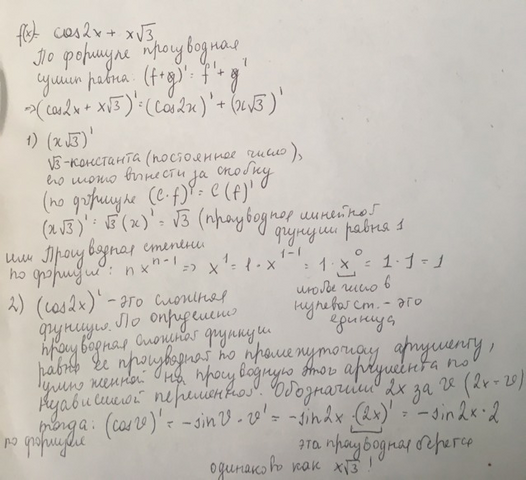 f(x)= cos2x + x√3
По формуле производная
суммы равна: (f+g)' = f' + g'
⇒(cos2x + x√3)' = (cos2x)' + (x√3)'
1) (x√3)'
√3-константа (постоянное число),
его можно вынести за скобку
(по формуле (C·f)' = C(f)'
(x√3)' = √3 (x)' = √3 (производная линейной
функции равна 1
или Производная степени
по формуле: n x^(n-1) ⇒ x^1 = 1·x^(1-1) = 1·x^0 = 1·1 = 1
любое число в
нулевой ст. - это
единица
2) (cos2x)' - это сложная
функция. По определению
производная сложной функции
равна её производная по промежуточному аргументу,
умноженной на производную этого аргумента по
независимой переменной. Обозначим 2x за v (2x = v)
тогда: (cosv)' = -sinv·v' = -sin2x·(2x)' = -sin2x·2
по формуле
эта производная берётся
одинаково как x√3!